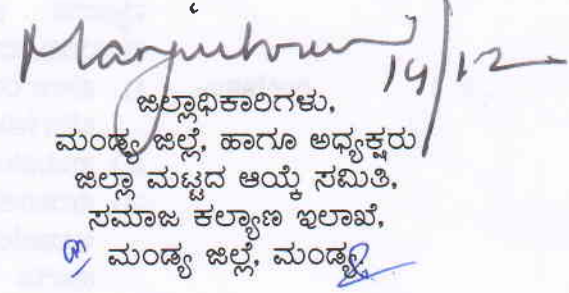 14/12
ಜಿಲ್ಲಾಧಿಕಾರಿಗಳು,
ಮಂಡ್ಯ ಜಿಲ್ಲೆ, ಹಾಗೂ ಅಧ್ಯಕ್ಷರು
ಜಿಲ್ಲಾ ಮಟ್ಟದ ಆಯ್ಕೆ ಸಮಿತಿ,
ಸಮಾಜ ಕಲ್ಯಾಣ ಇಲಾಖೆ,
ಮಂಡ್ಯ ಜಿಲ್ಲೆ, ಮಂಡ್ಯ